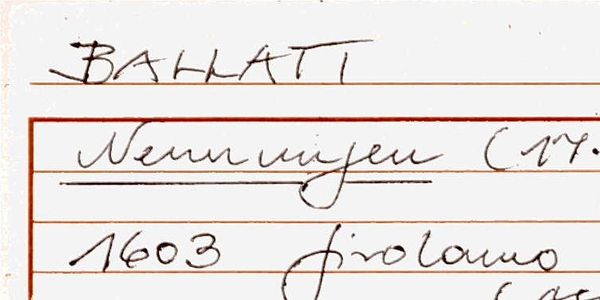 BALLATI
Nennungen (17.
1603 Girolamo